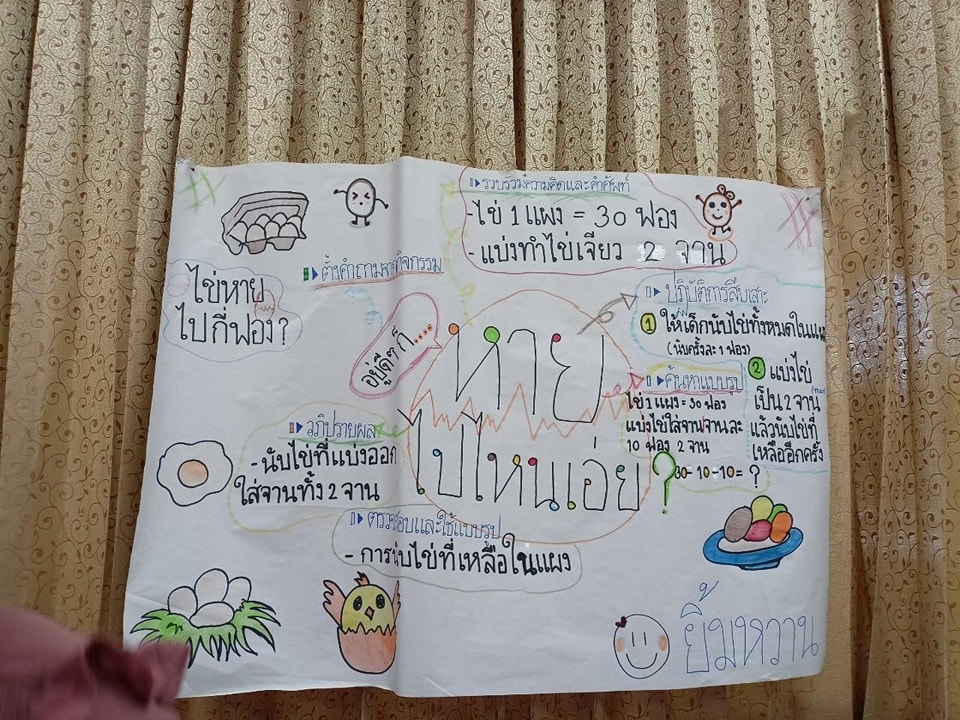 รวบรวมความคิดและคำศัพท์
-ไข่ 1 แผง = 30 ฟอง
-แบ่งทำไข่เจียว 2 จาน
ตั้งคำถามจากกิจกรรม
ไข่หาย
ไปกี่ฟอง?
อยู่ดีๆ ก็....
หาย
ไปไหนเอ่ย?
ปฏิบัติการสืบเสาะ
1 ให้เด็กนับไข่ทั้งหมดในแผง
(นับครั้งละ 1 ฟอง)
2 แบ่งไข่
เป็น 2 จาน
แล้วนับไข่ที่
เหลืออีกครั้ง
ค้นหาแบบรูป
ไข่ 1 แผง = 30 ฟอง
แบ่งไข่ใส่จานจานละ
10 ฟอง 2 จาน
30-10-10= ?
อภิปรายผล
- นับไข่ที่แบ่งออก
ใส่จานทั้ง 2 จาน
ตรวจสอบและใช้แบบรูป
- การนับไข่ที่เหลือในแผง
ยิ้มหวาน